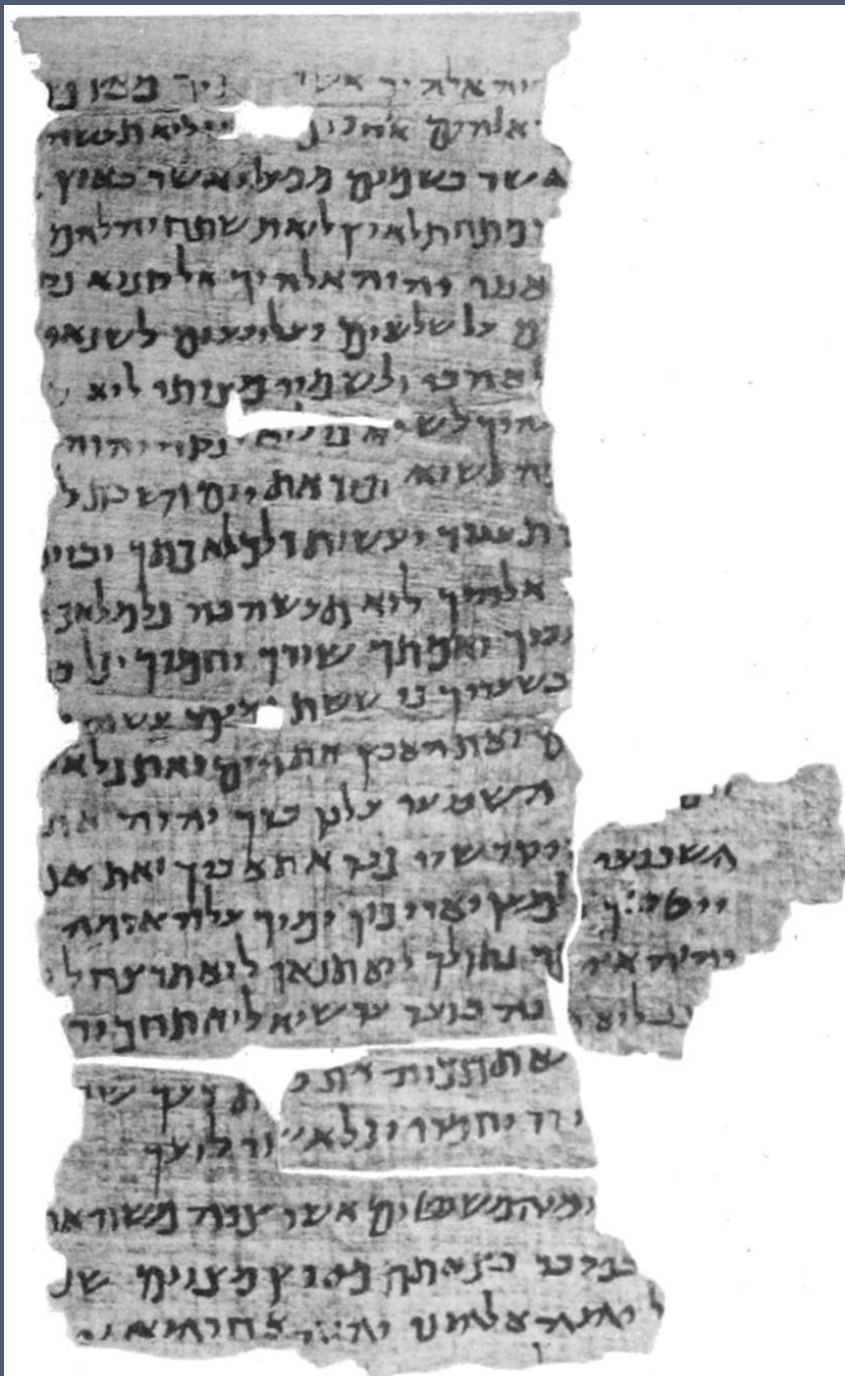 אלהיך אשר
אלהים אחרים לוא תעשה
אשר בשמים ממעל ואשר בארץ
מתחת לארץ לוא תשתחוה להם
יהוה אלהיך אל קנוא
על שלשים ועל רבעים לשנאי
לאהבי ולשמרי מצותי לוא
לשוא כי לוא ינקה יהוה
לשוא זכור את יום השבת ל
תעבוד ועשית כל מלאכתך וביום
אלהיך לוא תעשה בה כל מלאכה
עבדך ואמתך שורך וחמרך וכל ב
בשעריך כי ששת ימים עשה
ואת הארץ את הים ואת כל א
השביעי על כן ברך יהוה את
השביעי ויקדשו כבד את אביך ואת אמ
ייטב לך ולמען יאריכון ימיך על האדמה
יהוה אלהיך נתן לך לוא תנאף לוא תרצח לו
גנב לוא ענה ברעך עד שוא לוא תחמוד
תתאוה את ב ת רעך שד
ורו וחמרו וכל אשר לרעך
ים והמשפטים אשר צוה משה את
במדבר בצאתם מארץ מצרים שמ
ל יהוה אלהינו יהוה אחד הוא